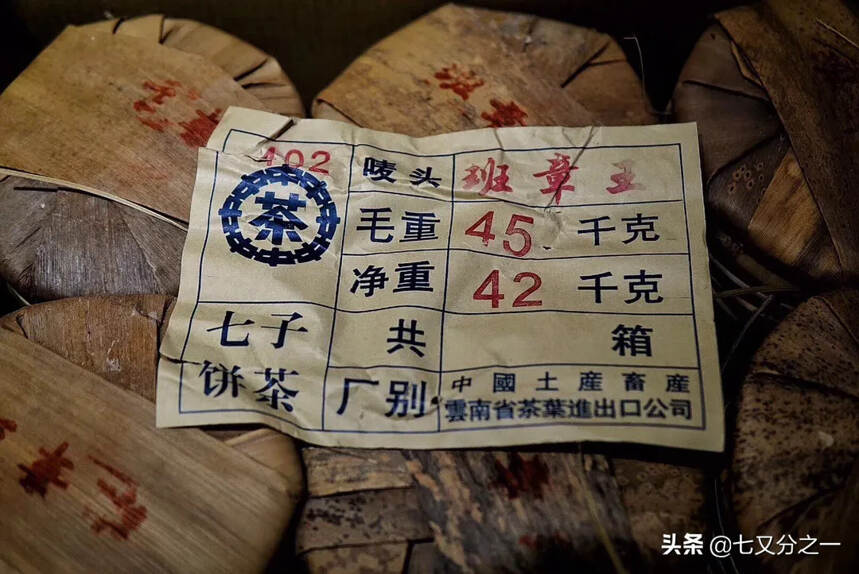 402
茶
唛头 班章王
毛重 45 千克
净重 42 千克
七子
饼茶
共 箱
厂别 中國土産畜産
雲南省茶葉進出口公司
头条 @七又分之一